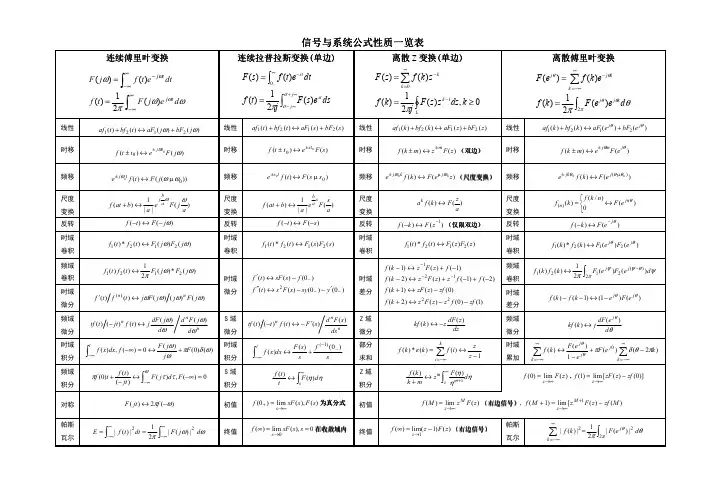 信号与系统公式性质一览表
连续傅里叶变换 连续拉普拉斯变换(单边) 离散 Z 变换(单边) 离散傅里叶变换
F(jω) = ∫_{-∞}^{∞} f(t)e^{-jωt} dt F(s) = ∫_{0-}^{∞} f(t)e^{-st} dt F(z) = Σ_{k=0}^{∞} f(k)z^{-k} F(e^{jθ}) = Σ_{k=-∞}^{∞} f(k)e^{-jθk}
f(t) = 1/2π ∫_{-∞}^{∞} F(jω)e^{jωt} dω f(t) = 1/2πj ∫_{σ-j∞}^{σ+j∞} F(s)e^{st} ds f(k) = 1/2πj ∮_L F(z)z^{k-1} dz, k ≥ 0 f(k) = 1/2π ∫_{2π} F(e^{jθ})e^{jkθ} dθ
线性 af₁(t)+bf₂(t)↔aF₁(jω)+bF₂(jω) 线性 af₁(t)+bf₂(t)↔aF₁(s)+bF₂(s) 线性 af₁(k)+bf₂(k)↔aF₁(z)+bF₂(z) 线性 af₁(k)+bf₂(k)↔aF₁(e^{jθ})+bF₂(e^{jθ})
时移 f(t±t₀)↔e^{±jωt₀}F(jω) 时移 f(t±t₀)↔e^{±st₀}F(s) 时移 f(k±m)↔z^{±m}F(z) (双边) 时移 f(k±m)↔e^{±jθm}F(e^{jθ})
频移 e^{±jω₀t}f(t)↔F(j(ω μ ω₀)) 频移 e^{±s₀t}f(t)↔F(s μ s₀) 频移 e^{±jω₀k}f(k)↔F(e^{μjω₀}z) (尺度变换) 频移 e^{±jkθ₀}f(k)↔F(e^{j(θ μ θ₀)})
尺度变换 f(at+b)↔1/|a| e^{j(b/a)ω}F(jω/a) 尺度变换 f(at+b)↔1/|a| e^{(b/a)s}F(s/a) 尺度变换 a^k f(k)↔F(z/a) 尺度变换 f_{(n)}(k)={f(k/n) 0 ↔F(e^{jnθ})
反转 f(-t)↔F(-jω) 反转 f(-t)↔F(-s) 反转 f(-k)↔F(z^{-1}) (仅限双边) 反转 f(-k)↔F(e^{-jθ})
时域卷积 f₁(t)*f₂(t)↔F₁(jω)F₂(jω) 时域卷积 f₁(t)*f₂(t)↔F₁(s)F₂(s) 时域卷积 f₁(t)*f₂(t)↔F₁(z)F₂(z) 时域卷积 f₁(k)*f₂(k)↔F₁(e^{jθ})F₂(e^{jθ})
频域卷积 f₁(t)f₂(t)↔1/2π F₁(jω)*F₂(jω) 时域微分 f'(t)↔sF(s)-f(0₋) 时域差分 f(k-1)↔z^{-1}F(z)+f(-1) 频域卷积 f₁(k)f₂(k)↔1/2π ∫_{2π} F₁(e^{jψ})F₂(e^{j(θ-ψ)})dψ
f''(t)↔s²F(s)-sy(0₋)-y'(0₋) f(k-2)↔z^{-2}F(z)+z^{-1}f(-1)+f(-2)
时域微分 f'(t)/f^{(n)}(t)↔jωF(jω)/(jω)^n F(jω) f(k+1)↔zF(z)-zf(0) 时域差分 f(k)-f(k-1)↔(1-e^{-jθ})F(e^{jθ})
f(k+2)↔z²F(z)-z²f(0)-zf(1)
频域微分 tf(t)/(-jt)^n f(t)↔j dF(jω)/dω / d^nF(jω)/dω^n S 域微分 tf(t)/(-t)^n f(t)↔-F'(s)/ d^nF(s)/ds^n Z 域微分 kf(k)↔-z dF(z)/dz 频域微分 kf(k)↔j dF(e^{jθ})/dθ
时域积分 ∫_{-∞}^{t} f(x)dx, f(-∞)=0↔F(jω)/jω+πF(0)δ(ω) 时域积分 ∫_{-∞}^{t} f(x)dx↔F(s)/s+f^{(-1)}(0₋)/s 部分求和 f(k)*ε(k)=Σ_{i=-∞}^{k} f(i)↔z/(z-1) 时域累加 Σ_{k=-∞}^{∞} f(k)↔F(e^{jθ})/(1-e^{jθ})+πF(e^{j0})Σ_{k=-∞}^{∞} δ(θ-2πk)
频域积分 πf(0)t+f(t)/(-jt)↔∫_{-∞}^{ω} F(jτ)dτ, F(-∞)=0 S 域积分 f(t)/t↔∫_s^{∞} F(η)dη Z 域积分 f(k)/(k+m)↔z^m∫_z^{∞} F(η)/η^{m+1} dη f(0)=lim_{z→∞} F(z), f(1)=lim_{z→∞}[zF(z)-zf(0)]
对称 F(jt)↔2πf(-ω) 初值 f(0₊)=lim_{s→∞} sF(s), F(s) 为真分式 初值 f(M)=lim_{z→∞} z^M F(z) (右边信号), f(M+1)=lim_{z→∞}[z^{M+1}F(z)-zf(M)]
帕斯瓦尔 E=∫_{-∞}^{∞}|f(t)|²dt=1/2π ∫_{-∞}^{∞}|F(jω)|² dω 终值 f(∞)=lim_{s→0} sF(s), s=0 在收敛域内 终值 f(∞)=lim_{z→1}(z-1)F(z) (右边信号) 帕斯瓦尔 Σ_{k=-∞}^{∞}|f(k)|²=1/2π ∫_{2π}|F(e^{jθ})|² dθ